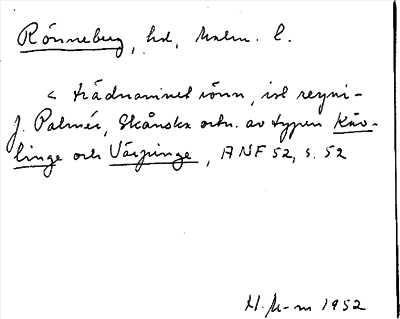 Rönneberg, hd, Malm. l.
< trädnamnet rönn, isl reyni-
J. Palmér, Skånska ortn. av typen Käv-
linge och Värpinge, ANF 52, s. 52
H. M-m 1952